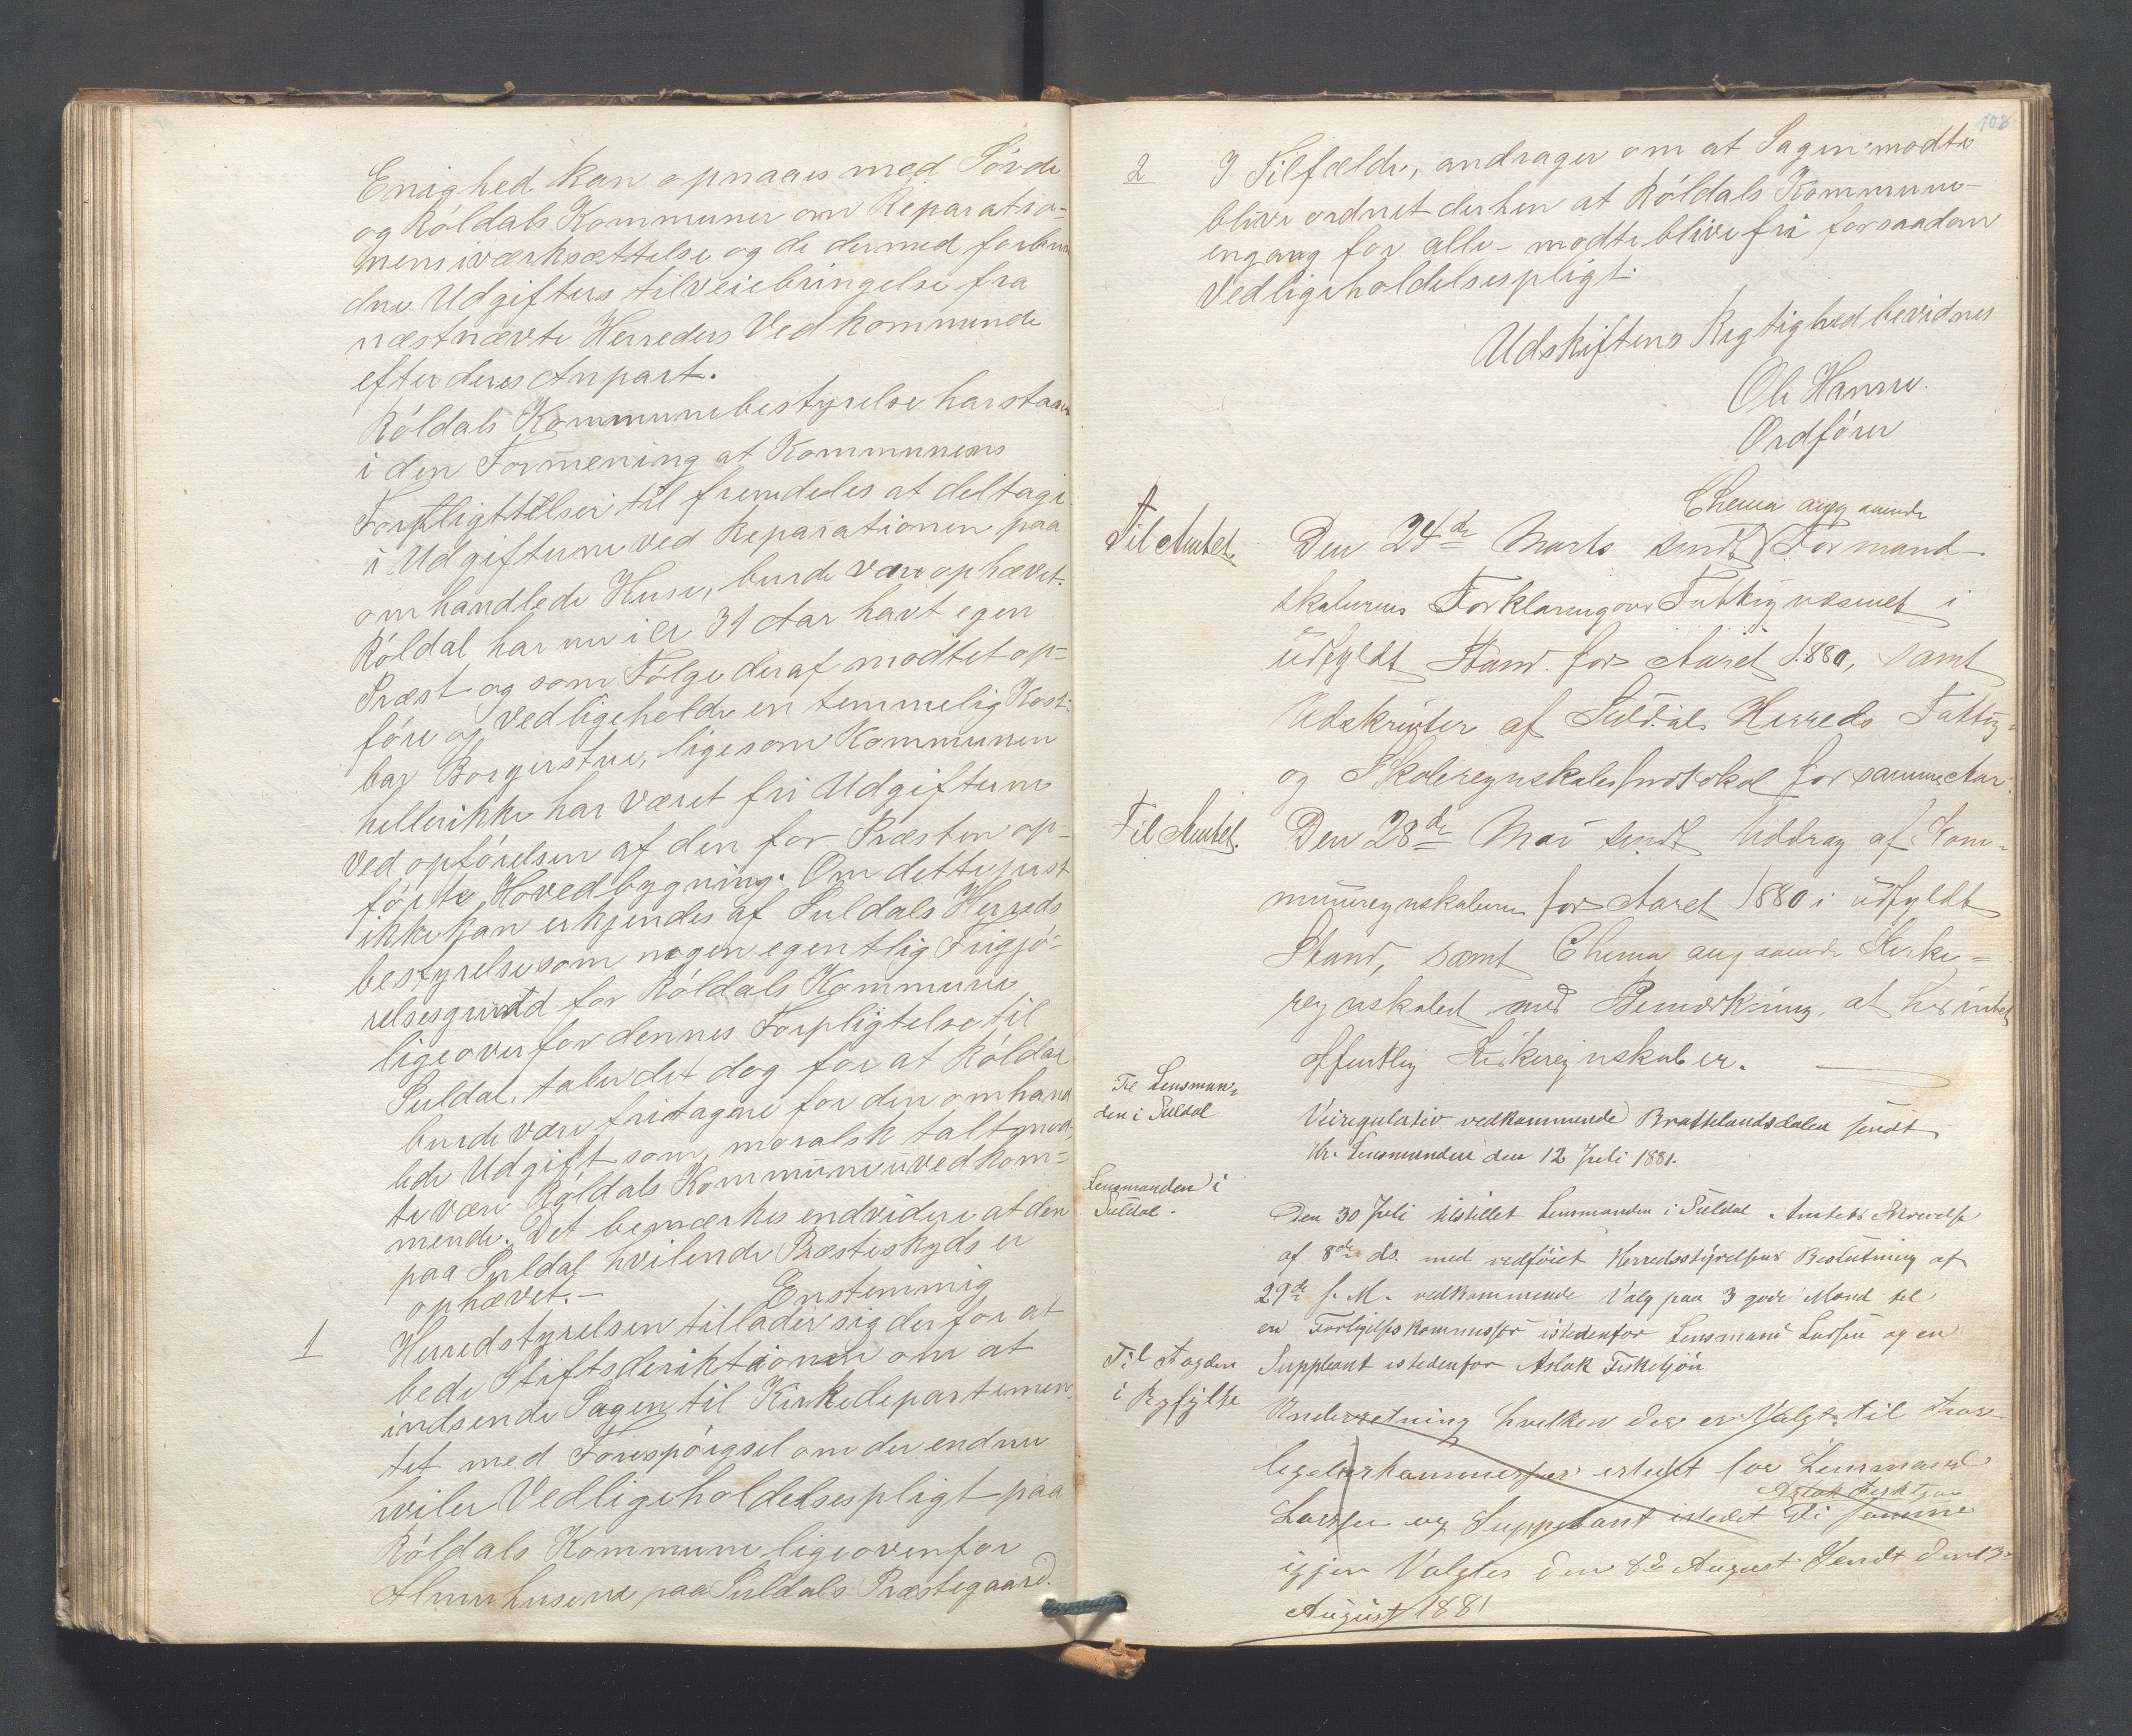 Enighed kan opnaaes med Sövde
og Röldals Kommuner om Reparatio-
nens iværksættelse og de dermed forbun
dne Udgifters tilveiebringelse fra
næstnævte Herreders Vedkommende
efter deres Anpart.
Röldals Kommunebestyrelse har staaet
i den Formening at Kommunens
Forpligttelser til fremdeles at deltage
i Udgifterne ved Reparationen paa
omhandlede Huse, burde være ophævet.
Röldal har nu i ca 31 Aar havt egen
Præst og som Fölge deraf modtet op-
före og vedligeholde en temmelig Kost-
bar Borgerstue, ligesom Kommunen
hellerikke har været fri Udgifterne
ved opförelsen af den for Præsten op-
förte Hovedbygning. Om dette just
ikke kan erkjendes af Suldals Herreds
bestyrelse som nogen egentlig Frigjö-
relsesgrund for Röldals Kommune
ligeoverfor dennes Forpligtelse til
Suldal, taler det dog for at Röldal
burde være fritagne for den omhand
lede Udgift som, moralsk talt maa-
te være Röldals Kommune uvedkom-
mende. Det bemærkes endvidere at den
paa Suldal hvilende Præsteskyds er
ophævet. — Enstemmig
1 Herredstyrelsen tillader sig derfor at
bede Stiftsdirektionen om at
indsende Sagen til Kirkedepartemen-
tet med Forespörgsel om der endnu
hviler Vedligeholdelsespligt paa
Röldals Kommune ligeoverfor
Almuhusene paa Suldals Præstegaard.
108
2 I Tilfælde, andrager om at Sagen modte
blive ordnet derhen at Röldals Kommune-
engang for alle - modte blive fri for saadan
Vedligeholdelsespligt.
Udskriftens Rigtighed bevidnes
Ole Hamre.
Ordförer
Chema angaaende
Til Amtet. Den 24de Marts sendt Formand-
skabernes Forklaring over Fattigvæsenet i
udfyldt Stand. for Aaret 1880, samt
Udskrivter af Suldals Herreds Fattig-
og Skoleregnskabsprotokol for samme Aar.
Til Amtet. Den 28de Mai sendt Uddrag af Kom-
muneregnskaberne for Aaret 1880 i udfyldt
Stand, samt Chema angaaende Kirke=
regnskabet med Bemærkning, at her intet
offentlig Kirkeregnskab er.
Til Lensman-
den i Suldal
Veiregulativ vedkommende Brattelandsdalen sendt
Hr. Lensmanden den 12 Juli 1881.
Lensmanden i
Suldal.
Den 30 Juli tilstillet Lensmanden i Suldal Amtets Skrivelse
af 8de ds. med vedföiet Herredsstyrelsens Beslutning af
29de s. M. vedkommende Valg paa 3 gode Mænd til
en Forligelseskommissær istedenfor Lensmand Larsen og en
Suppleant istedenfor Aslak Fisketjön
Til Fogden
i Ryfylke
Underretning hvilken der er Valgt til For-
legelseskommesser istedet for Lensmand
Aslak Fisktjøn
Larsen og Suppelant istedet Di samme
igjen Valgtes den 8de August Sendt den 13
August 1881